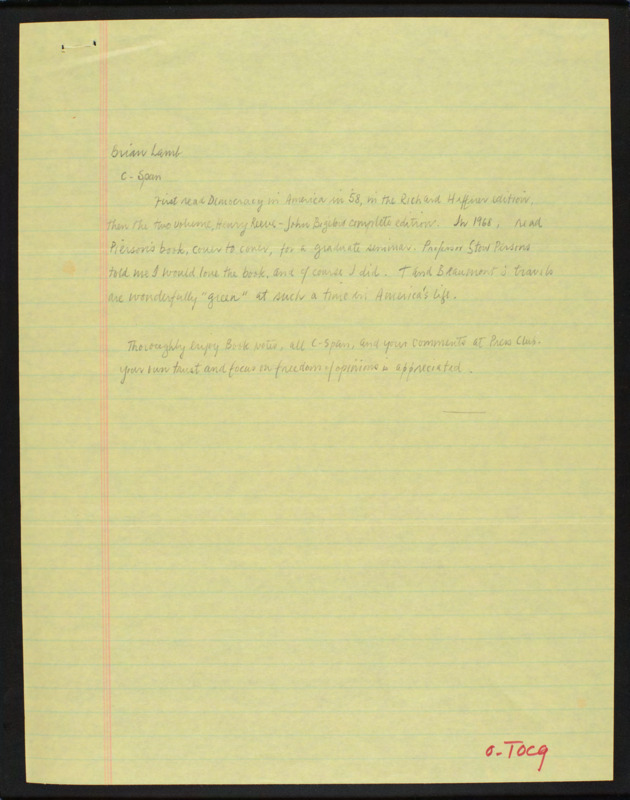 Brian Lamb
C-Span
First read Democracy in America in '58, in the Richard Heffner edition,
then the two volume, Henry Reeve - John Bigelow complete edition. In 1968, read
Pierson's book, cover to cover, for a graduate seminar. Professor Stow Persons
told me I would love the book, and of course I did. T and Beaumont's travels
are wonderfully "green" at such a time in America's life.
Thoroughly enjoy Book notes, all C-Span, and your comments at Press Club.
Your own trust and focus on freedom of opinions is appreciated.
o-TOCQ